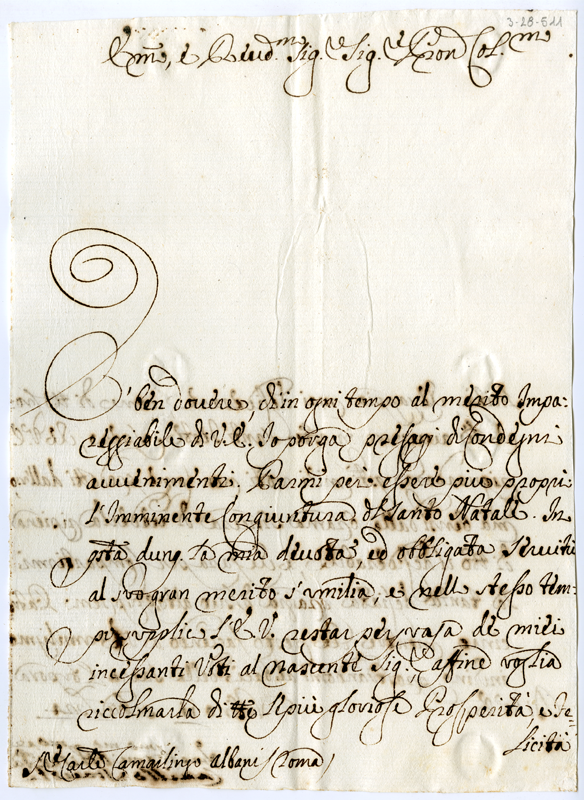 3-28-511
Em., e Reud.m Sig.e Sig.e Pron Col.mo
È ben douere, ch'in ogni tempo al merito Impa:
reggiabile di V.E. Io porga presagi di condegni
auuenimenti. Parmi però essere più propri
l'Imminente Congiuntura del Santo Natale. In
q.ta dunq. la mia deuota, ed obbligata seruitù
al suo gran merito s'umilia, e nell stesso tem:
po supplic l'E.V. restar persuasa de miei
incessanti Voti al nascente Sig.re affine voglia
riccolmarla di tte le più gloriose Prosperità e Fe:
licità
S.r Card.le Camarlingo Albani (Roma)